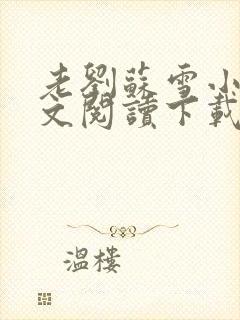 老劉蘇雪小
文閱讀下載
溫樓